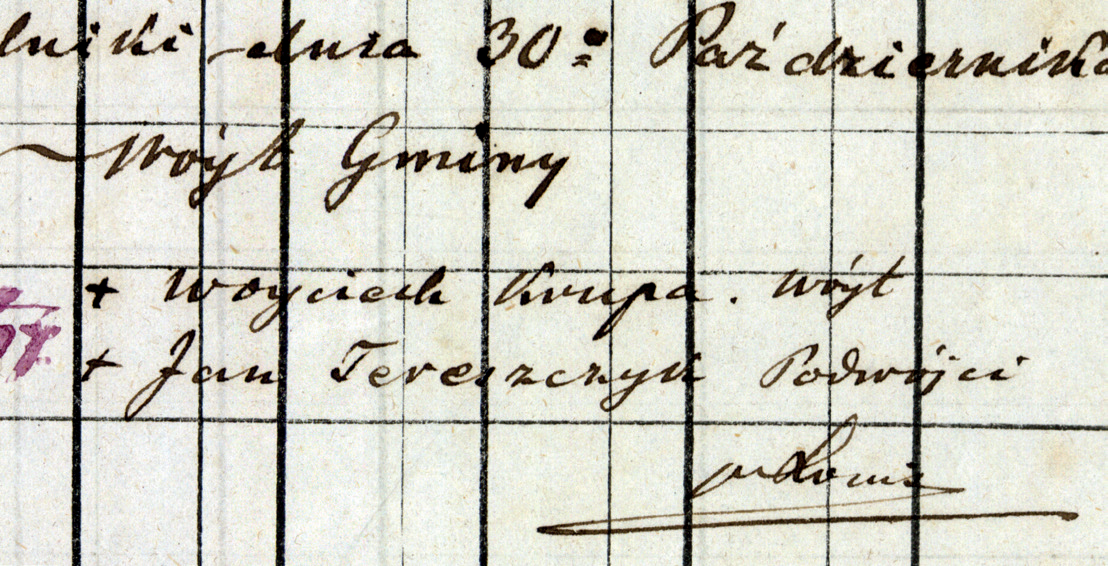 lniki dnia 30º Października
Wóyt Gminy
+ Woyciech Krupa. Wóyt
+ Jan Tereszczyk Podwójci